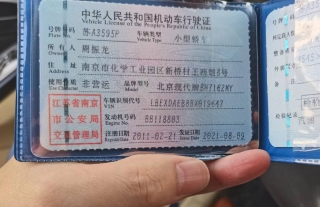 中华人民共和国机动车行驶证
Vehicle License of the People's Republic of China
号牌号码 苏A3595P 车辆类型 小型轿车
Plate No. Vehicle Type
所有人 周振龙
Owner
住址 南京市化学工业园区新桥村王西组8号
Address
使用性质 非营运 品牌型号 北京现代牌BH7162MY
Use Character Model
江苏省南京
市公安局
交通管理局
车辆识别代号
VIN
发动机号码 BB118803
Engine No.
注册日期 2011-02-21 发证日期 2021-08-09
Register Date Issue Date